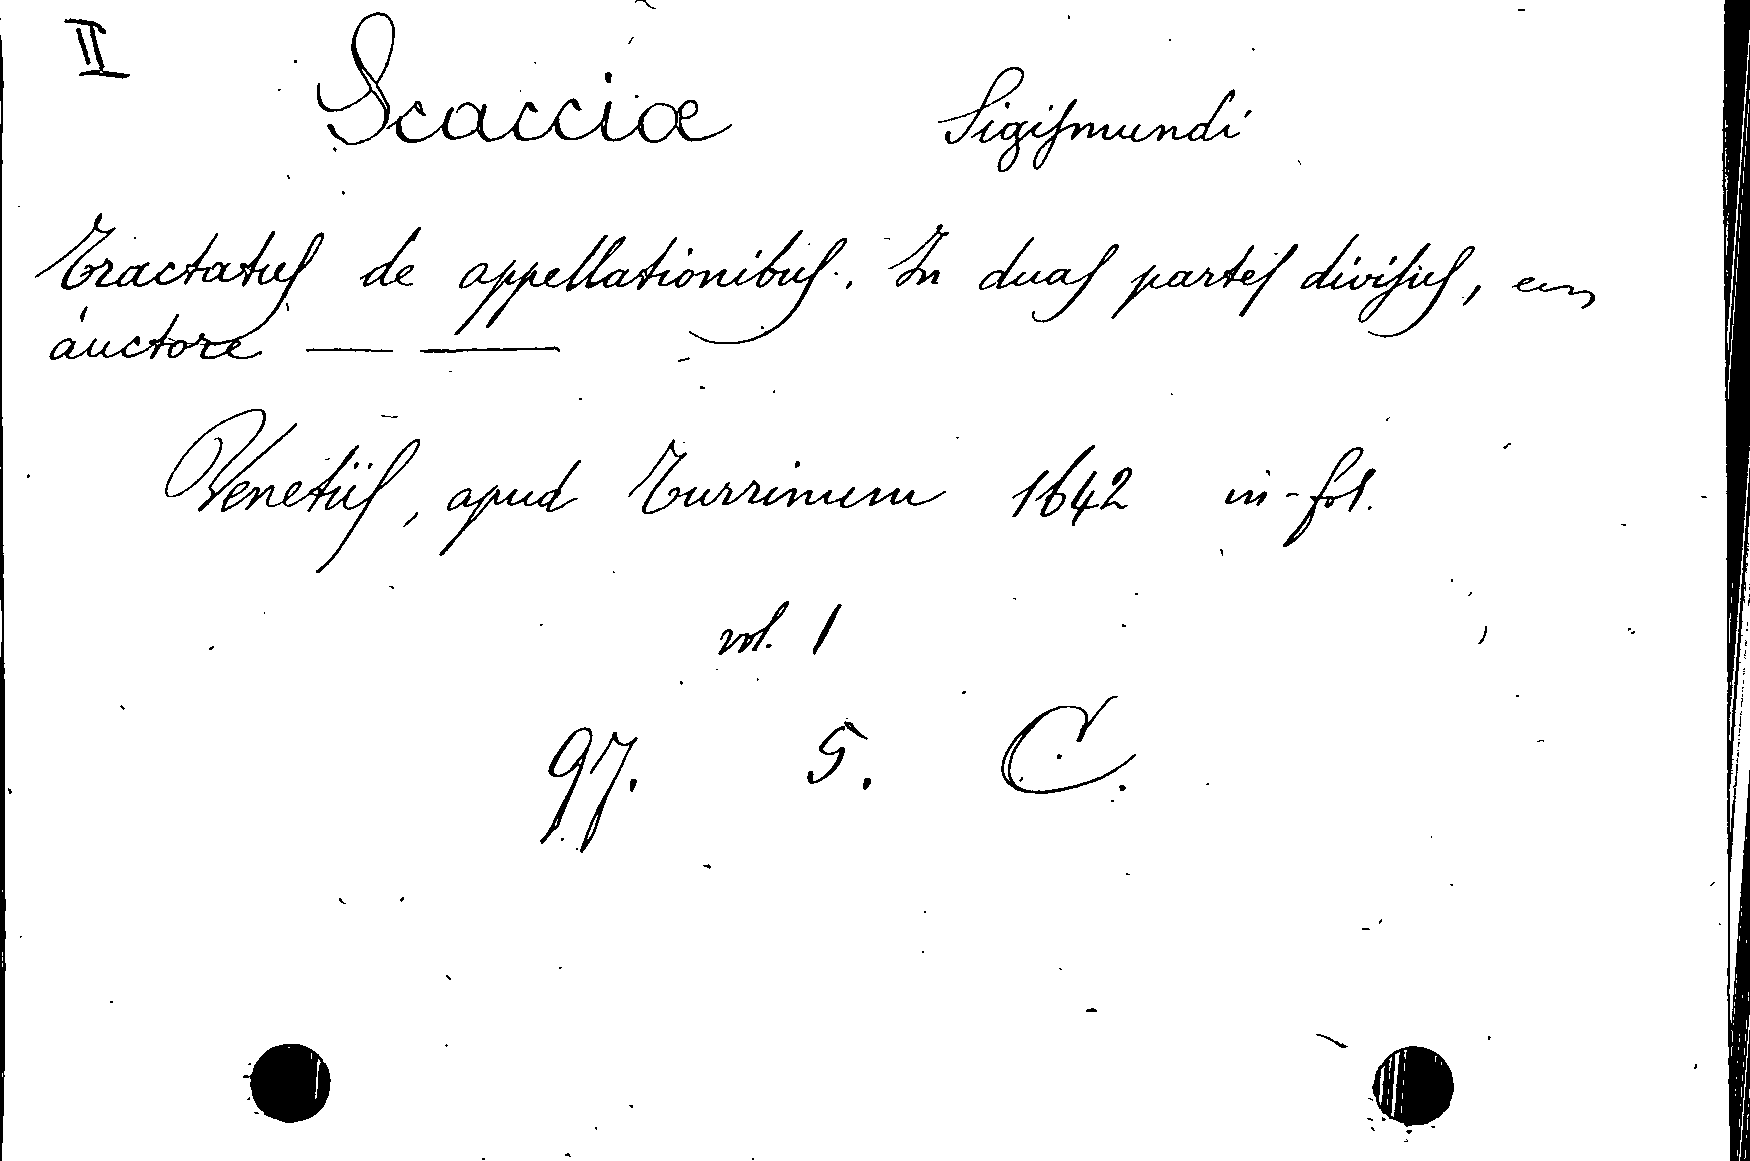 II
Scacciæ Sigismundi
Tractatus de appellationibus. In duas partes divisus,
auctore — —
Venetiis, apud Turrinum 1642 in-fol.
vol. 1
97. 5. C.